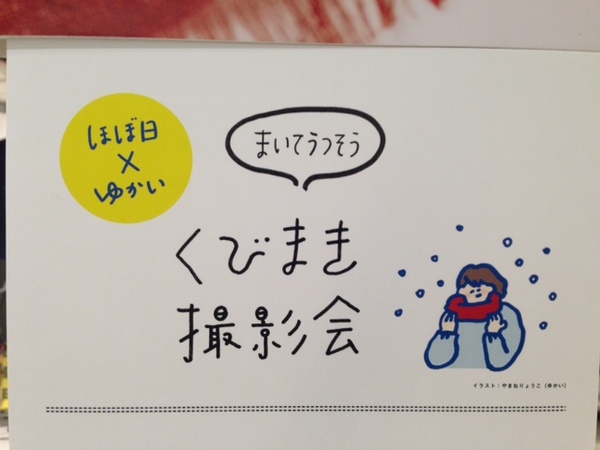 ほぼ日
×
ゆかい
まいてうつそう
くびまき
撮影会
イラスト：やまねりょうこ（ゆかい）